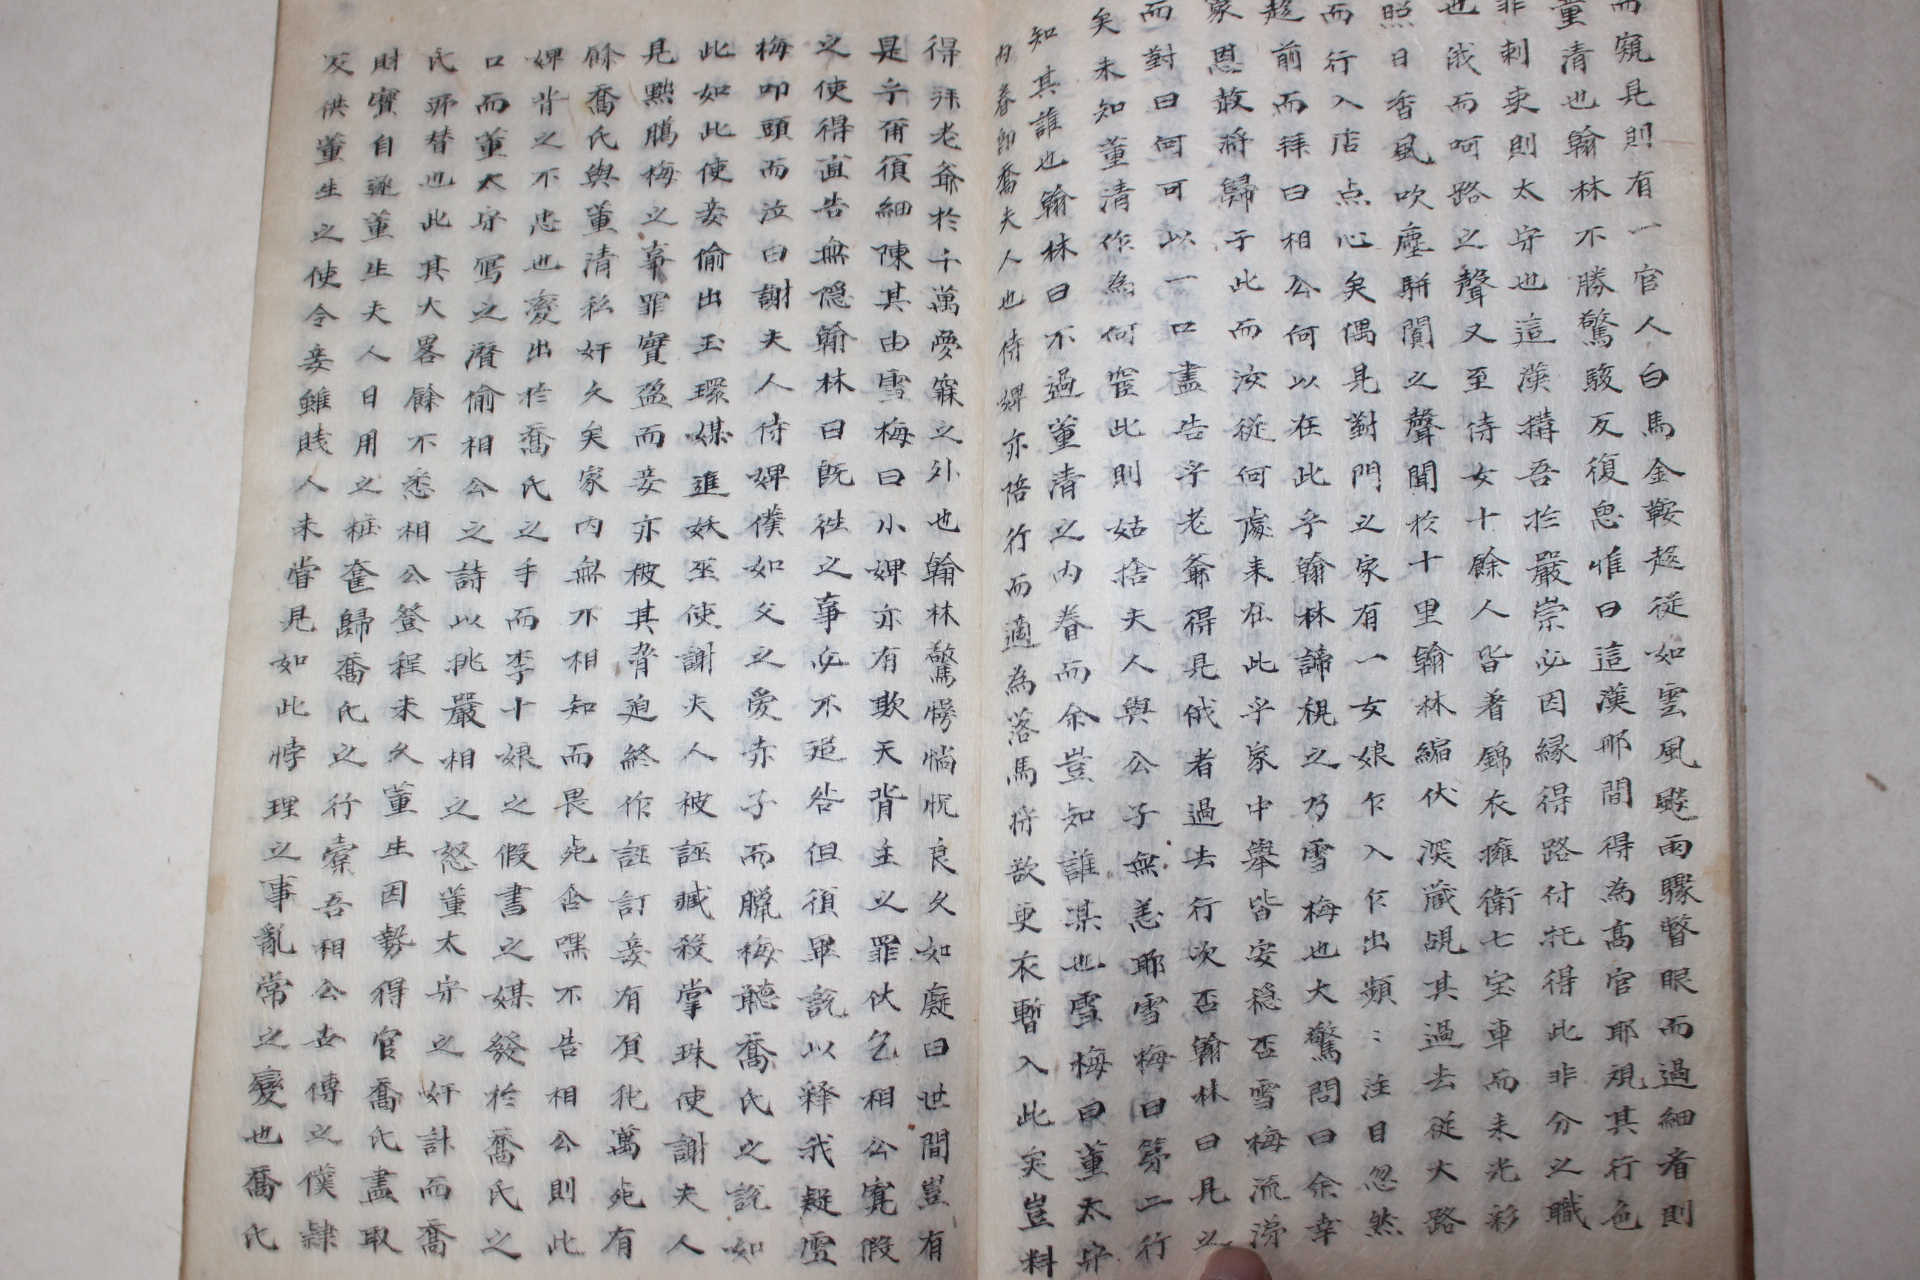 而窺見則有一官人白馬金鞍趍從如雲風颷雨驟瞥眼而過細看則
董清也翰林不勝驚駭反復思惟曰這漢那間得為高官耶視其行色
非刺吏則太守也這漢搆吾於嚴崇必因緣得路付托得此非分之職
也俄而呵路之聲又至侍女十餘人皆著錦衣擁衛七宝車而来光彩
照日香風吹塵駢闐之聲聞於十里翰林縮伏深藏覘其過去從大路
而行入店点心矣偶見對門之家有一女娘乍入乍出頻〻注目忽然
趍前而拜曰相公何以在此乎翰林諦視之乃雪梅也大驚問曰余幸
家恩赦將歸于此而汝從何處来在此乎家中舉皆安穏否雪梅流涕
而對曰何可以一口盡告乎老爺得見俄者過去行次否翰林曰見之
矣未知董清作為何官此則姑捨夫人與公子無恙耶雪梅曰第二行
知其誰也翰林曰不過董清之内眷而余豈知誰某也雪梅曰董太守
内眷即喬夫人也侍婢亦陪行而適為落馬将欲更衣暫入此矣豈料
得拜老爺於千萬夢寐之外也翰林驚愕惝怳良久如癡曰世間豈有
是乎甭須細陳其由雪梅曰小婢亦有欺天背主之罪伏乞相公寬假
之使得直告無隐翰林曰既徃之事必不追咎但須畢說以释我疑雪
梅叩頭而泣曰謝夫人侍婢僕如父之愛赤子而臘梅聽喬氏之說如
此如此使妾偷出玉環媒進妖巫使謝夫人被誣臧殺掌珠使謝夫人
見黜臘梅之事罪實盈而妾亦被其脅迫終作誣訂妾有負犯萬死有
餘喬氏與董清私奸久矣家内無不相知而畏死含嘿不告相公則此
婢背之不忠也變出於喬氏之手而李十娘之假書之媒發於喬氏之
口而董太守寫之潛偷相公之詩以挑嚴相之怒董太守之奸計而喬
氏所替也此其大畧餘不悉相公登程未久董生因勢得官喬氏盡取
財寶自逐董生夫人日用之粧奩歸喬氏之行橐吾相公世傳之僕隸
反供董生之使令妾雖賎人未甞見如此悖理之事亂常之變也喬氏